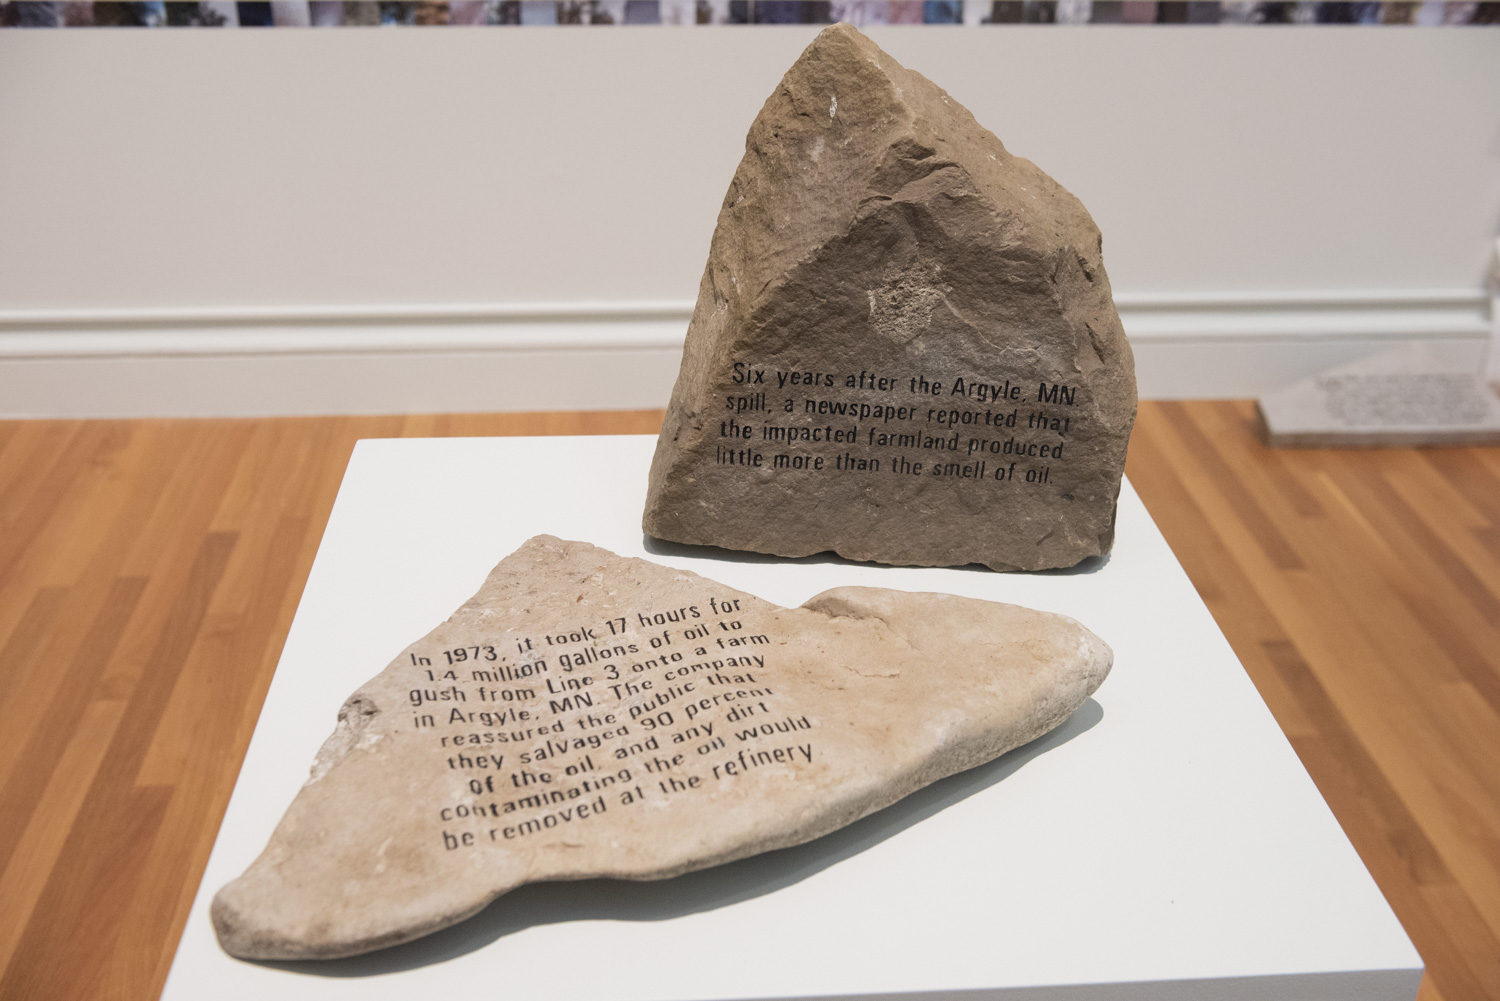 Six years after the Argyle, MN,
spill, a newspaper reported that
the impacted farmland produced
little more than the smell of oil.
In 1973, it took 17 hours for
1.4 million gallons of oil to
gush from Line 3 onto a farm
in Argyle, MN. The company
reassured the public that
they salvaged 90 percent
of the oil, and any dirt
contaminating the oil would
be removed at the refinery